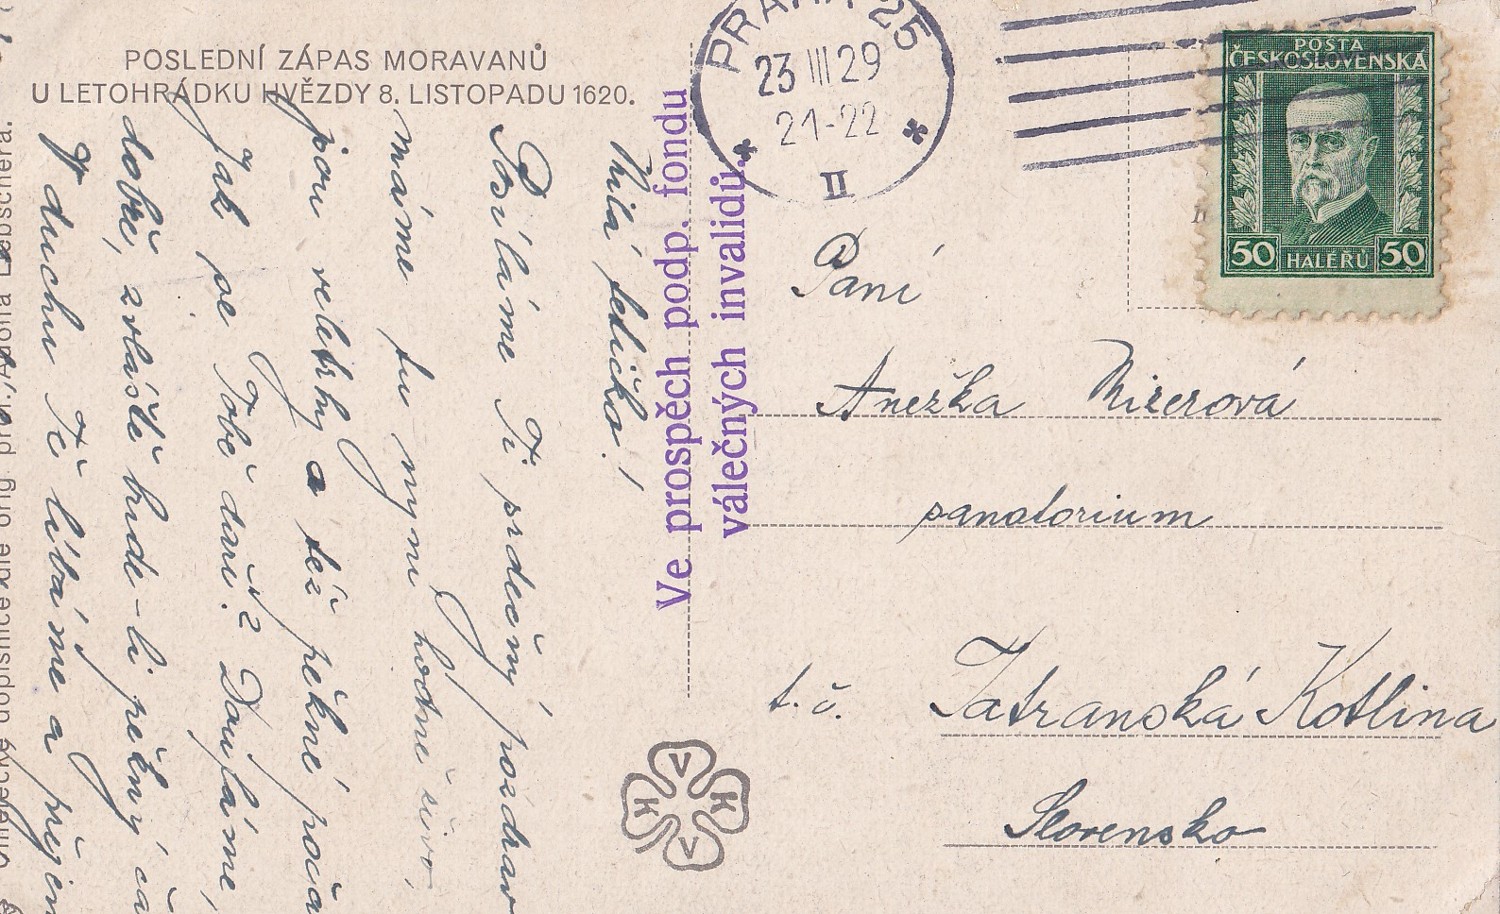 POSLEDNÍ ZÁPAS MORAVANŮ
U LETOHRÁDKU HVĚZDY 8. LISTOPADU 1620.
Milá tetičko!
Posíláme Ti srdečný pozdrav
máme tu nyní hodně živo,
jsou veletrhy a též pěkné poča
Jak se Tobě daří? Doufáme,
dobře, zvláště bude-li pěkný ča
V duchu Tě líbáme a přejem
Umělecké dopisnice dle orig. prof. Adolfa Liebschera.
Ve prospěch podp. fondu
válečných invalidů.
PRAHA 25
23 III 29
21-22
II
POŠTA
ČESKOSLOVENSKÁ
50 HALÉŘŮ 50
Paní
Anežka Mizerová
sanatorium
t. č. Tatranská Kotlina
Slovensko
V K V K